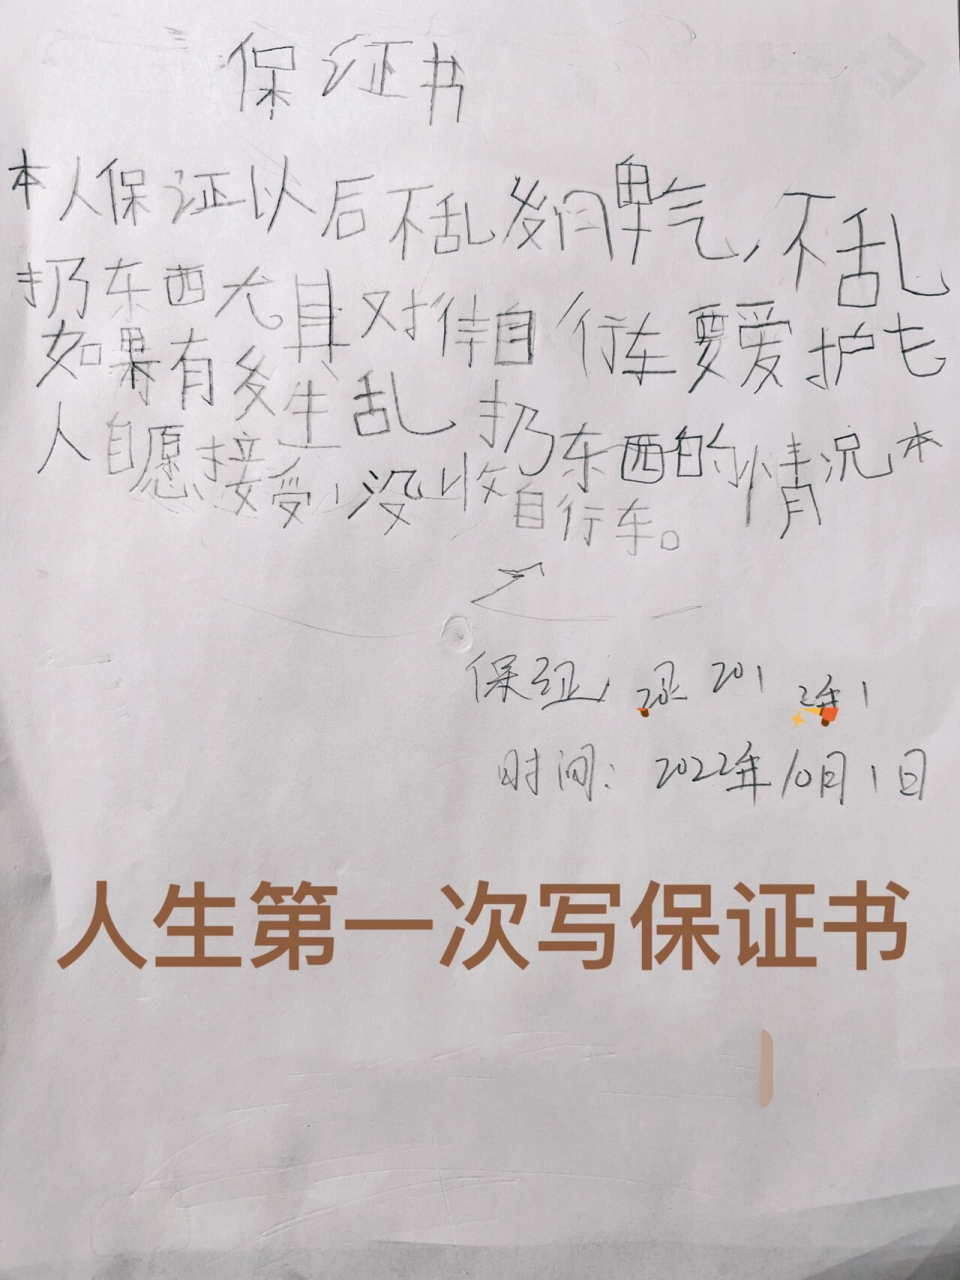 保证书
本人保证以后不乱发脾气，不乱
扔东西尤其对待自行车要爱护它
如果有多生乱扔东西的情况本
人自愿接受，没收自行车。
保证
时间：2022年10月1日
人生第一次写保证书